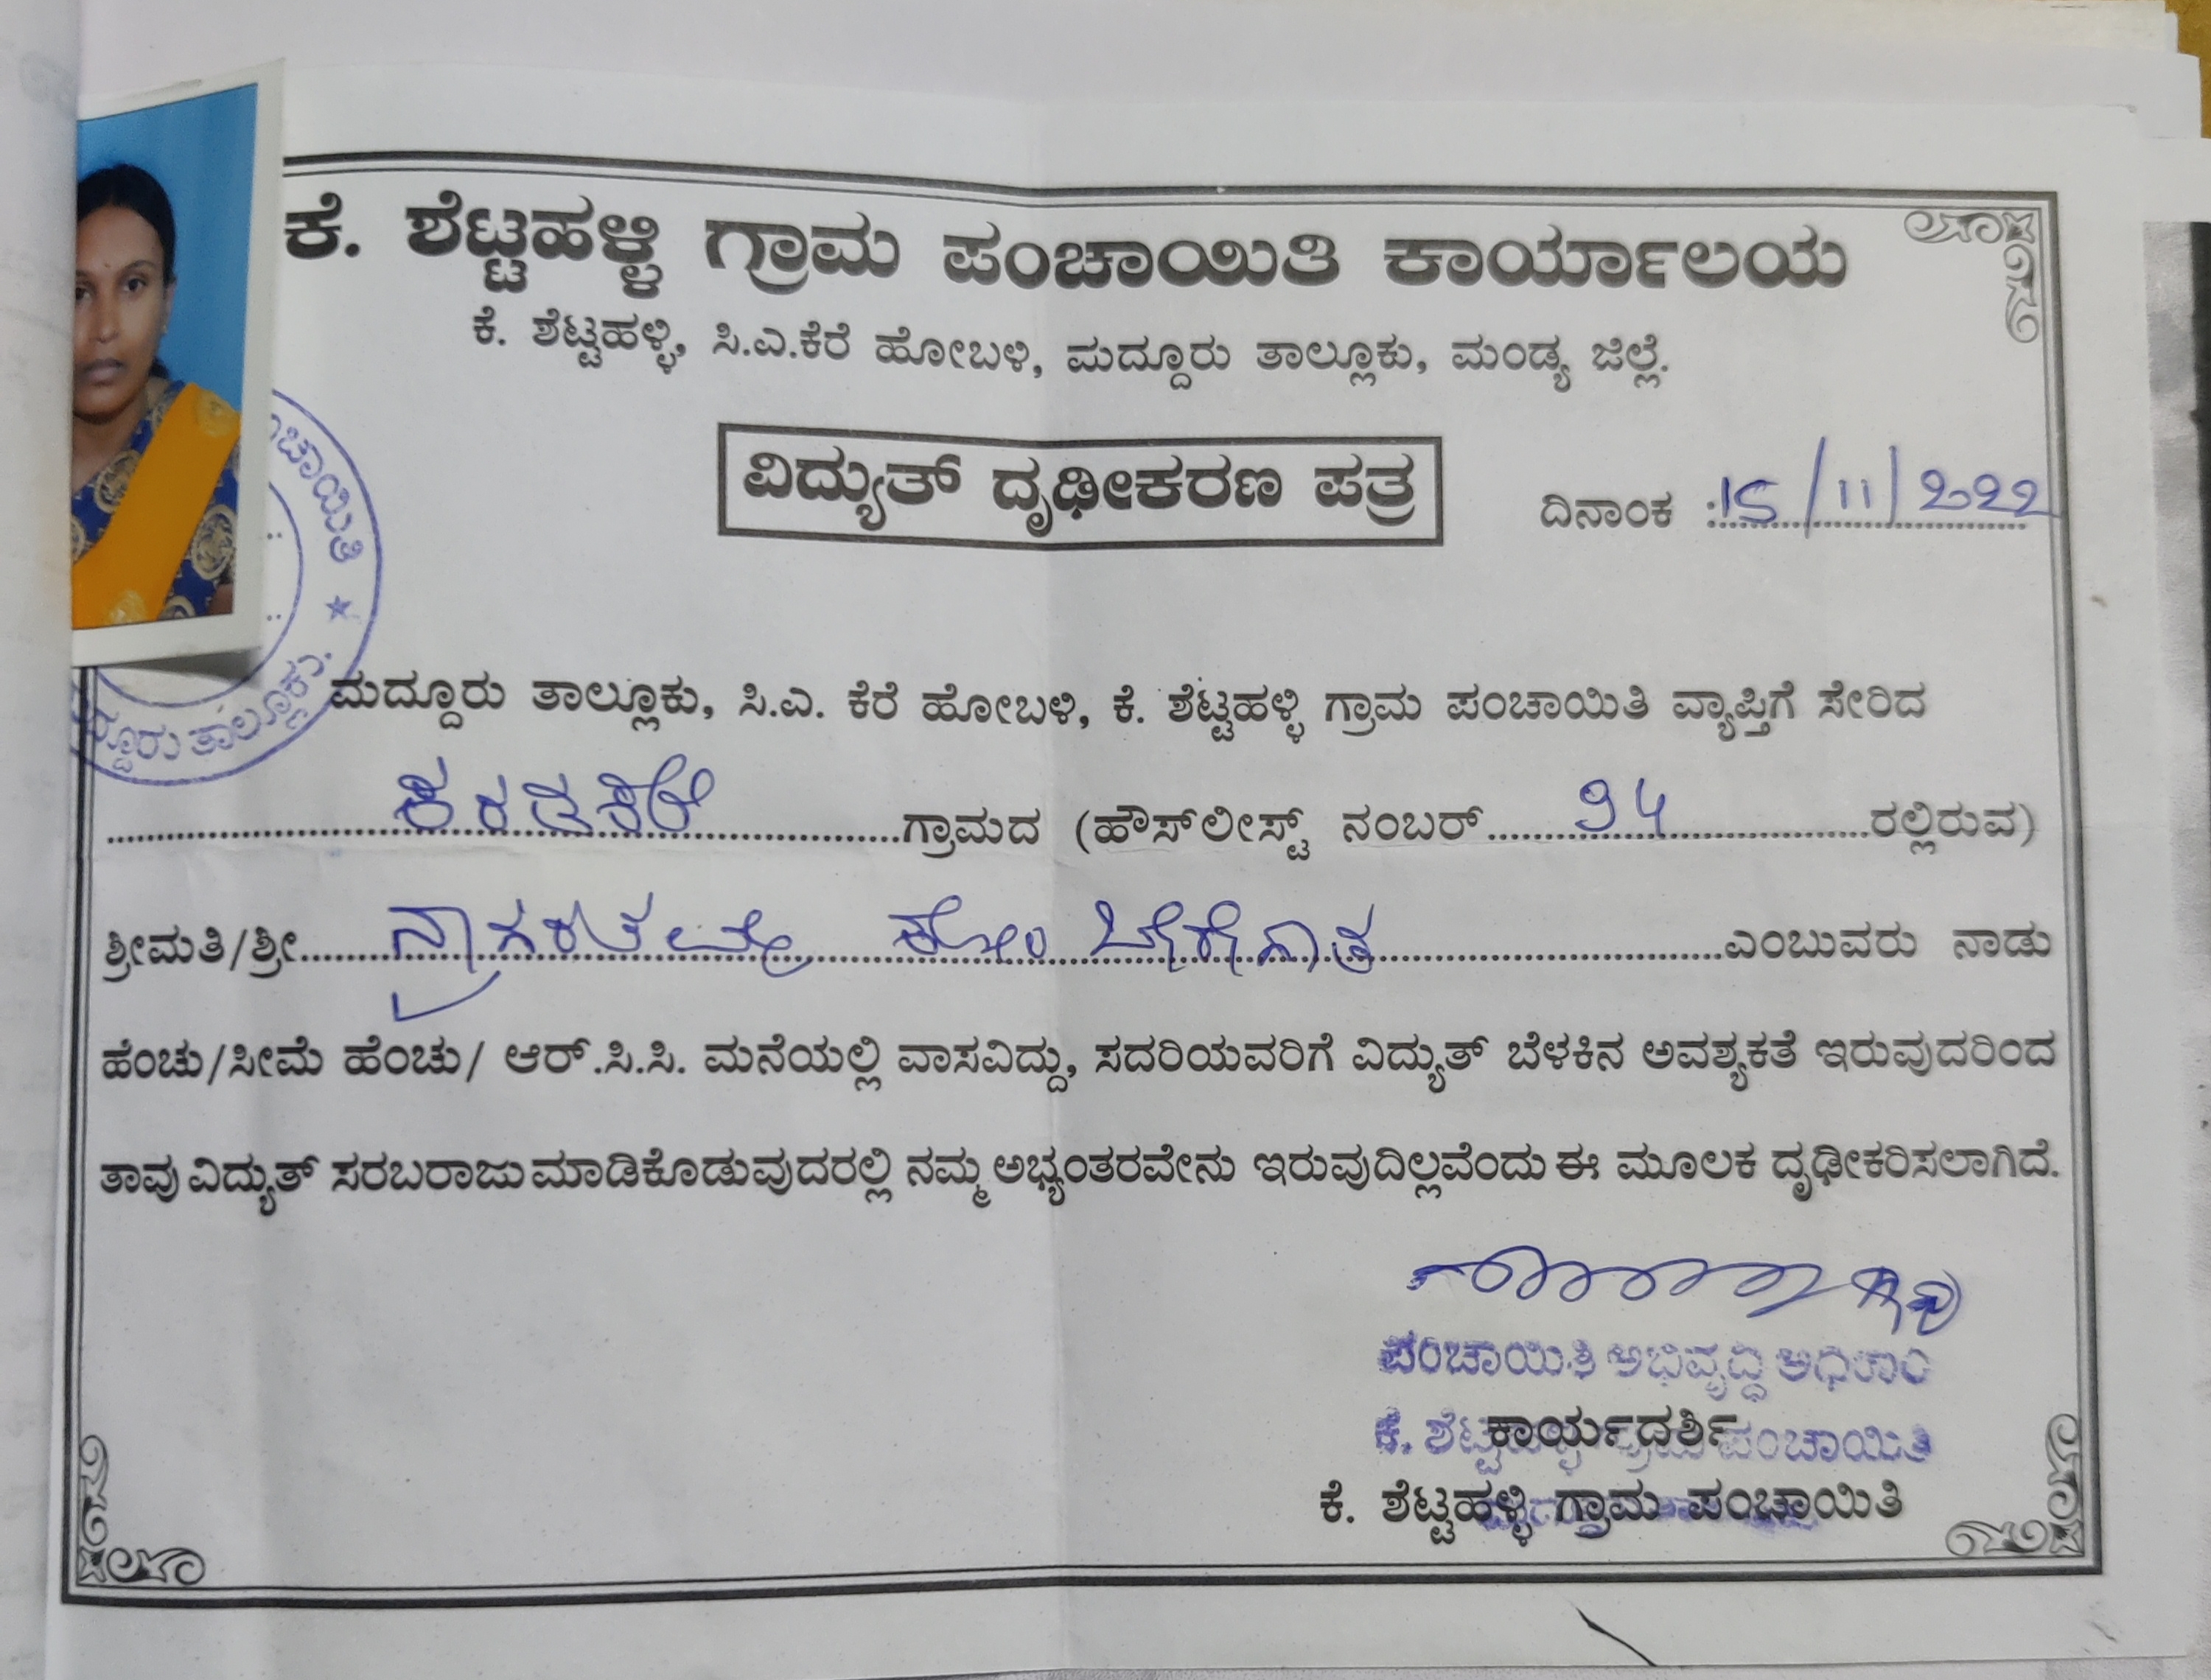 ಕೆ. ಶೆಟ್ಟಹಳ್ಳಿ ಗ್ರಾಮ ಪಂಚಾಯಿತಿ ಕಾರ್ಯಾಲಯ
ಕೆ. ಶೆಟ್ಟಹಳ್ಳಿ, ಸಿ.ಎ.ಕೆರೆ ಹೋಬಳಿ, ಮದ್ದೂರು ತಾಲ್ಲೂಕು, ಮಂಡ್ಯ ಜಿಲ್ಲೆ.
ವಿದ್ಯುತ್ ದೃಢೀಕರಣ ಪತ್ರ
ದಿನಾಂಕ :15/11/2022
ಮದ್ದೂರು ತಾಲ್ಲೂಕು, ಸಿ.ಎ. ಕೆರೆ ಹೋಬಳಿ, ಕೆ. ಶೆಟ್ಟಹಳ್ಳಿ ಗ್ರಾಮ ಪಂಚಾಯಿತಿ ವ್ಯಾಪ್ತಿಗೆ ಸೇರಿದ
ಗ್ರಾಮದ (ಹೌಸ್‌ಲೀಸ್ಟ್ ನಂಬರ್ 94 ರಲ್ಲಿರುವ)
ಶ್ರೀಮತಿ/ಶ್ರೀ ಕೋಂ ಎಂಬುವರು ನಾಡು
ಹೆಂಚು/ಸೀಮೆ ಹೆಂಚು/ ಆರ್.ಸಿ.ಸಿ. ಮನೆಯಲ್ಲಿ ವಾಸವಿದ್ದು, ಸದರಿಯವರಿಗೆ ವಿದ್ಯುತ್ ಬೆಳಕಿನ ಅವಶ್ಯಕತೆ ಇರುವುದರಿಂದ
ತಾವು ವಿದ್ಯುತ್ ಸರಬರಾಜು ಮಾಡಿಕೊಡುವುದರಲ್ಲಿ ನಮ್ಮ ಅಭ್ಯಂತರವೇನು ಇರುವುದಿಲ್ಲವೆಂದು ಈ ಮೂಲಕ ದೃಢೀಕರಿಸಲಾಗಿದೆ.
ಪಂಚಾಯಿತಿ ಅಭಿವೃದ್ಧಿ
ಕಾರ್ಯದರ್ಶಿ
ಕೆ. ಶೆಟ್ಟಹಳ್ಳಿ ಗ್ರಾಮ ಪಂಚಾಯಿತಿ